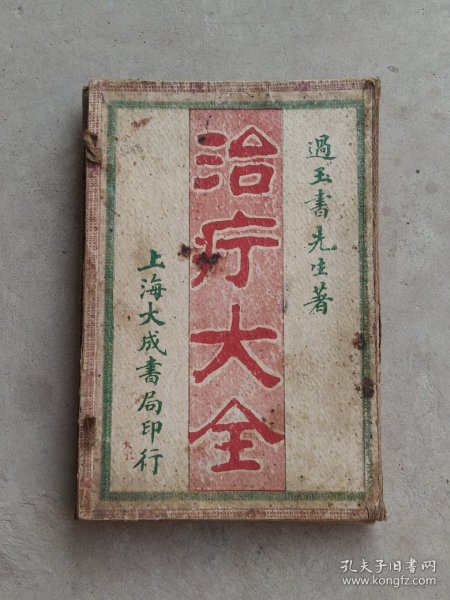 過玉書先生著
治疔大全
上海大成書局印行
孔夫子旧书网
www.kongfz.com